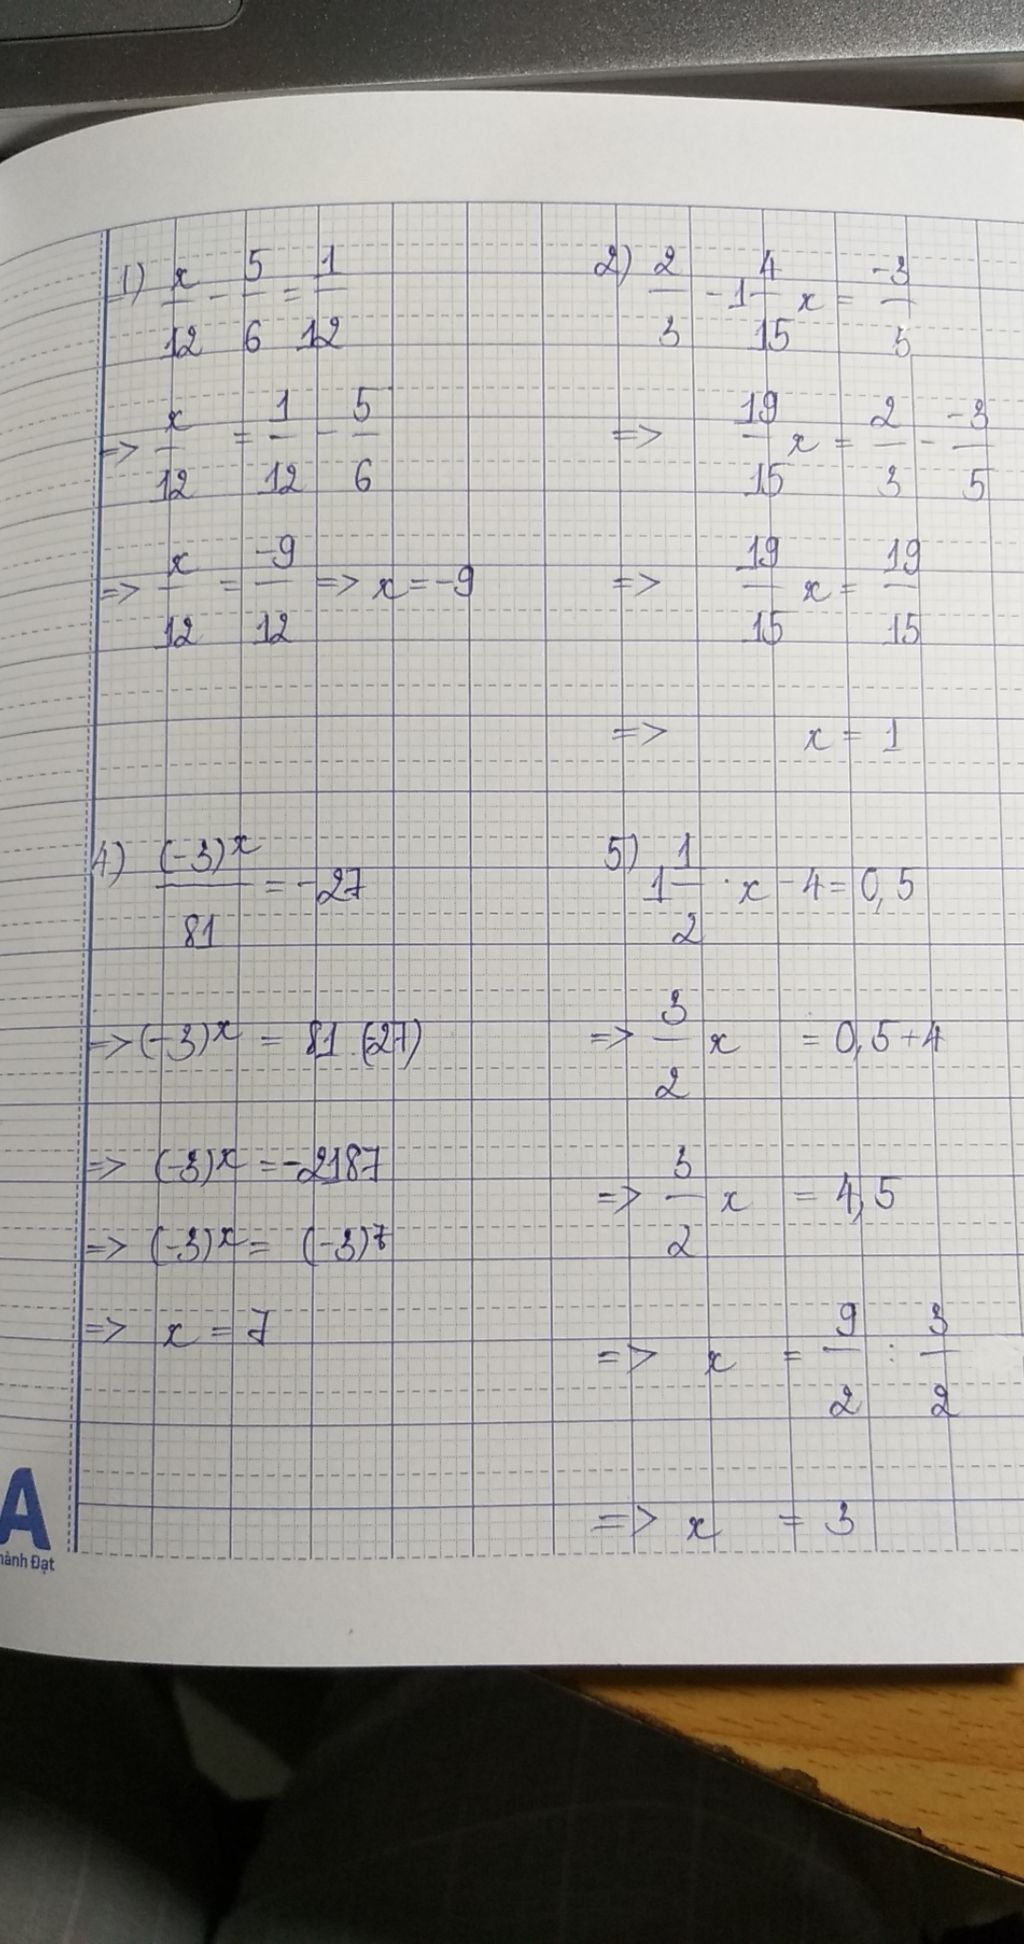 1) x/12 - 5/6 = 1/12
=> x/12 = 1/12 - 5/6
=> x/12 = -9/12 => x = -9
2) 2/3 - 1 4/15 x = -3/5
=> 19/15 x = 2/3 - -3/5
=> 19/15 x = 19/15
=> x = 1
4) (-3)^x/81 = -27
=> (-3)^x = 81.(-27)
=> (-3)^x = -2187
=> (-3)^x = (-3)^7
=> x = 7
5) 1 1/2 . x - 4 = 0,5
=> 3/2 x = 0,5 + 4
=> 3/2 x = 4,5
=> x = 9/2 : 3/2
=> x = 3
A
hành Đạt